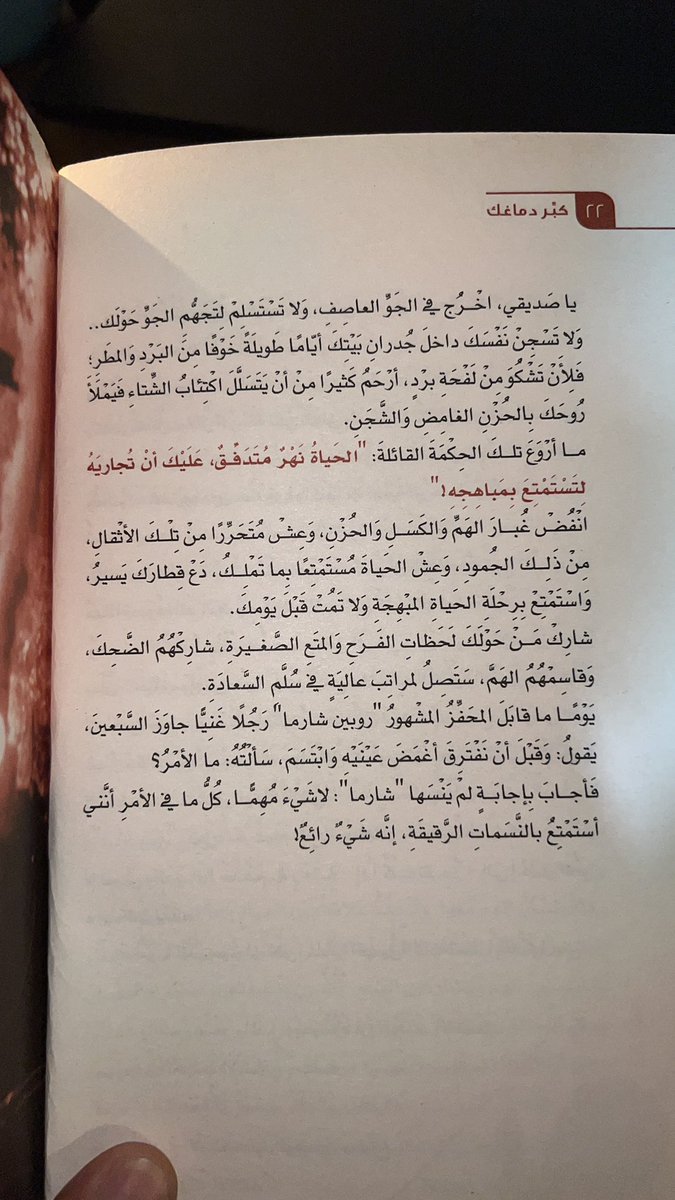 ٢٢ كبّر دماغك
يا صَديقي، اخْرُج في الجَوِّ العاصِفِ، وَلا تَسْتَسْلِمْ لِتَجَهُّم الجَوِّ حَوْلَك..
وَلا تَسْجِنْ نَفْسَكَ داخلَ جُدرانِ بَيْتِكَ أيّامًا طَويلَةً خَوْفًا مِنَ البَرْد وَالمطَر؛
فَلِأَنْ تَشْكُوَ مِنْ لَفْحَةِ بردٍ، أرْحَمُ كَثيرًا مِنْ أنْ يَتَسَلَّلَ اكْتِئابُ الشِّتاءِ فَيَمْلَأَ
رُوحَكَ بِالحُزْنِ الغامِضِ وَالشَّجَنِ.
ما أرْوَعَ تلـكَ الحِكْمَةَ القائلَةَ: "الحَياةُ نَهْرٌ مُتَدَفِّقٌ، عَلَيْكَ أنْ تُجاريَهُ
لِتَسْتَمْتِعَ بِمَباهِجِهِ!"
انْفُضْ غُبـارَ الهَمِّ وَالكَسَـلِ وَالحُزْنِ، وَعِشْ مُتَحَرِّرًا مِنْ تِلْـكَ الأثْقالِ،
مِنْ ذَلِـكَ الجُمودِ، وَعشْ الحَياةَ مُسْتَمْتِعًا بِما تَمْلِـكُ، دَعْ قِطارَكَ يَسيرُ،
وَاسْتَمْتِعْ بِرِحْلَةِ الحَياةِ المُبْهِجَةِ وَلا تَمُتْ قَبْلَ يَوْمِكَ.
شارِكْ مَـنْ حَوْلَكَ لَحَظاتِ الفَرَحِ وَالمتَعِ الصَّغيرَةِ، شارِكْهُمُ الضَّحِكَ،
وَقاسِمْهُمُ الهَمَّ، سَتَصِلُ لمراتِبَ عالِيَةٍ في سُلَّمِ السَّعادَة.
يَوْمًـا ما قابَلَ المحَفِّزُ المشْهورُ "روبين شارما" رَجُلًا غَنِيًّا جاوَزَ السَّبْعينَ،
يَقولُ: وَقَبْلَ أنْ نَفْتَرِقَ أغْمَضَ عَيْنَيْهِ وَابْتَسَمَ، سَألْتُهُ: ما الأمْرُ؟
فَأجـابَ بِإجابَـةٍ لَمْ يَنْسَها "شارما": لاشَيْءَ مُهِمًّـا، كُلُّ ما في الأمْرِ أنَّني
أسْتَمْتِعُ بالنَّسَماتِ الرَّقيقَةِ، إنَّه شَيْءٌ رائِعٌ!